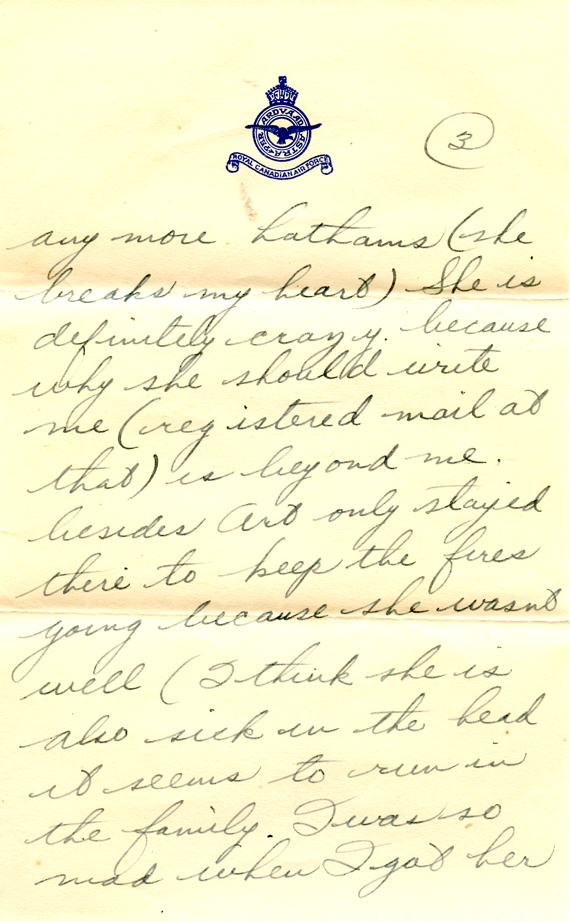 PER ARDUA AD ASTRA
ROYAL CANADIAN AIR FORCE
3
any more Lathams (she
breaks my heart) She is
definitely crazy. because
why she should write
me (registered mail at
that) is beyond me.
besides Art only stayed
there to keep the fires
going because she wasnt
well (I think she is
also sick in the head
it seems to run in
the family. I was so
mad when I got her